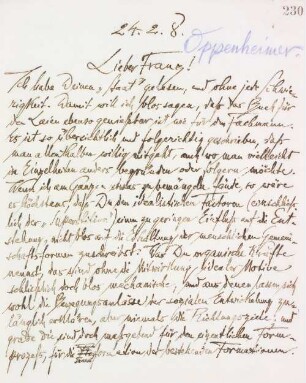 230
24. 2. 8.
Oppenheimer.
Lieber Franz!
Ich habe Deinen „Staat" gelesen, und ohne jede Schwie-
rigkeit. Damit will ich blos sagen, daß das Buch für
den Laien ebenso genießbar ist wie für den Fachmann.
Es ist so übersichtlich und folgerichtig geschrieben, daß
man allenthalben willig mitgeht, auch wo man vielleicht
im Einzelnen anders begründen oder folgern möchte.
Wenn ich am Ganzen etwas zu bemängeln hätte, so wäre
es höchstens, daß Du den idealistischen Factoren (einschließ-
lich der Superstition) einen zu geringen Einfluß auf die Ent-
stehung, nicht blos auf die Erhaltung der menschlichen Gemein-
schaftsformen zuschreibst. Was Du organische Kräfte
nennst, das sind ohne die Mitwirkung ideeller Motive
schließlich doch blos mechanische; und aus denen lassen sich
wohl die Bewegungsantriebe der socialen Entwickelung zu-
länglich erklären, aber niemals die Richtungsziele; und
grade die sind doch maßgebend für den eigentlichen Form-
prozeß, für die Transformation der bestimmten Formationen.